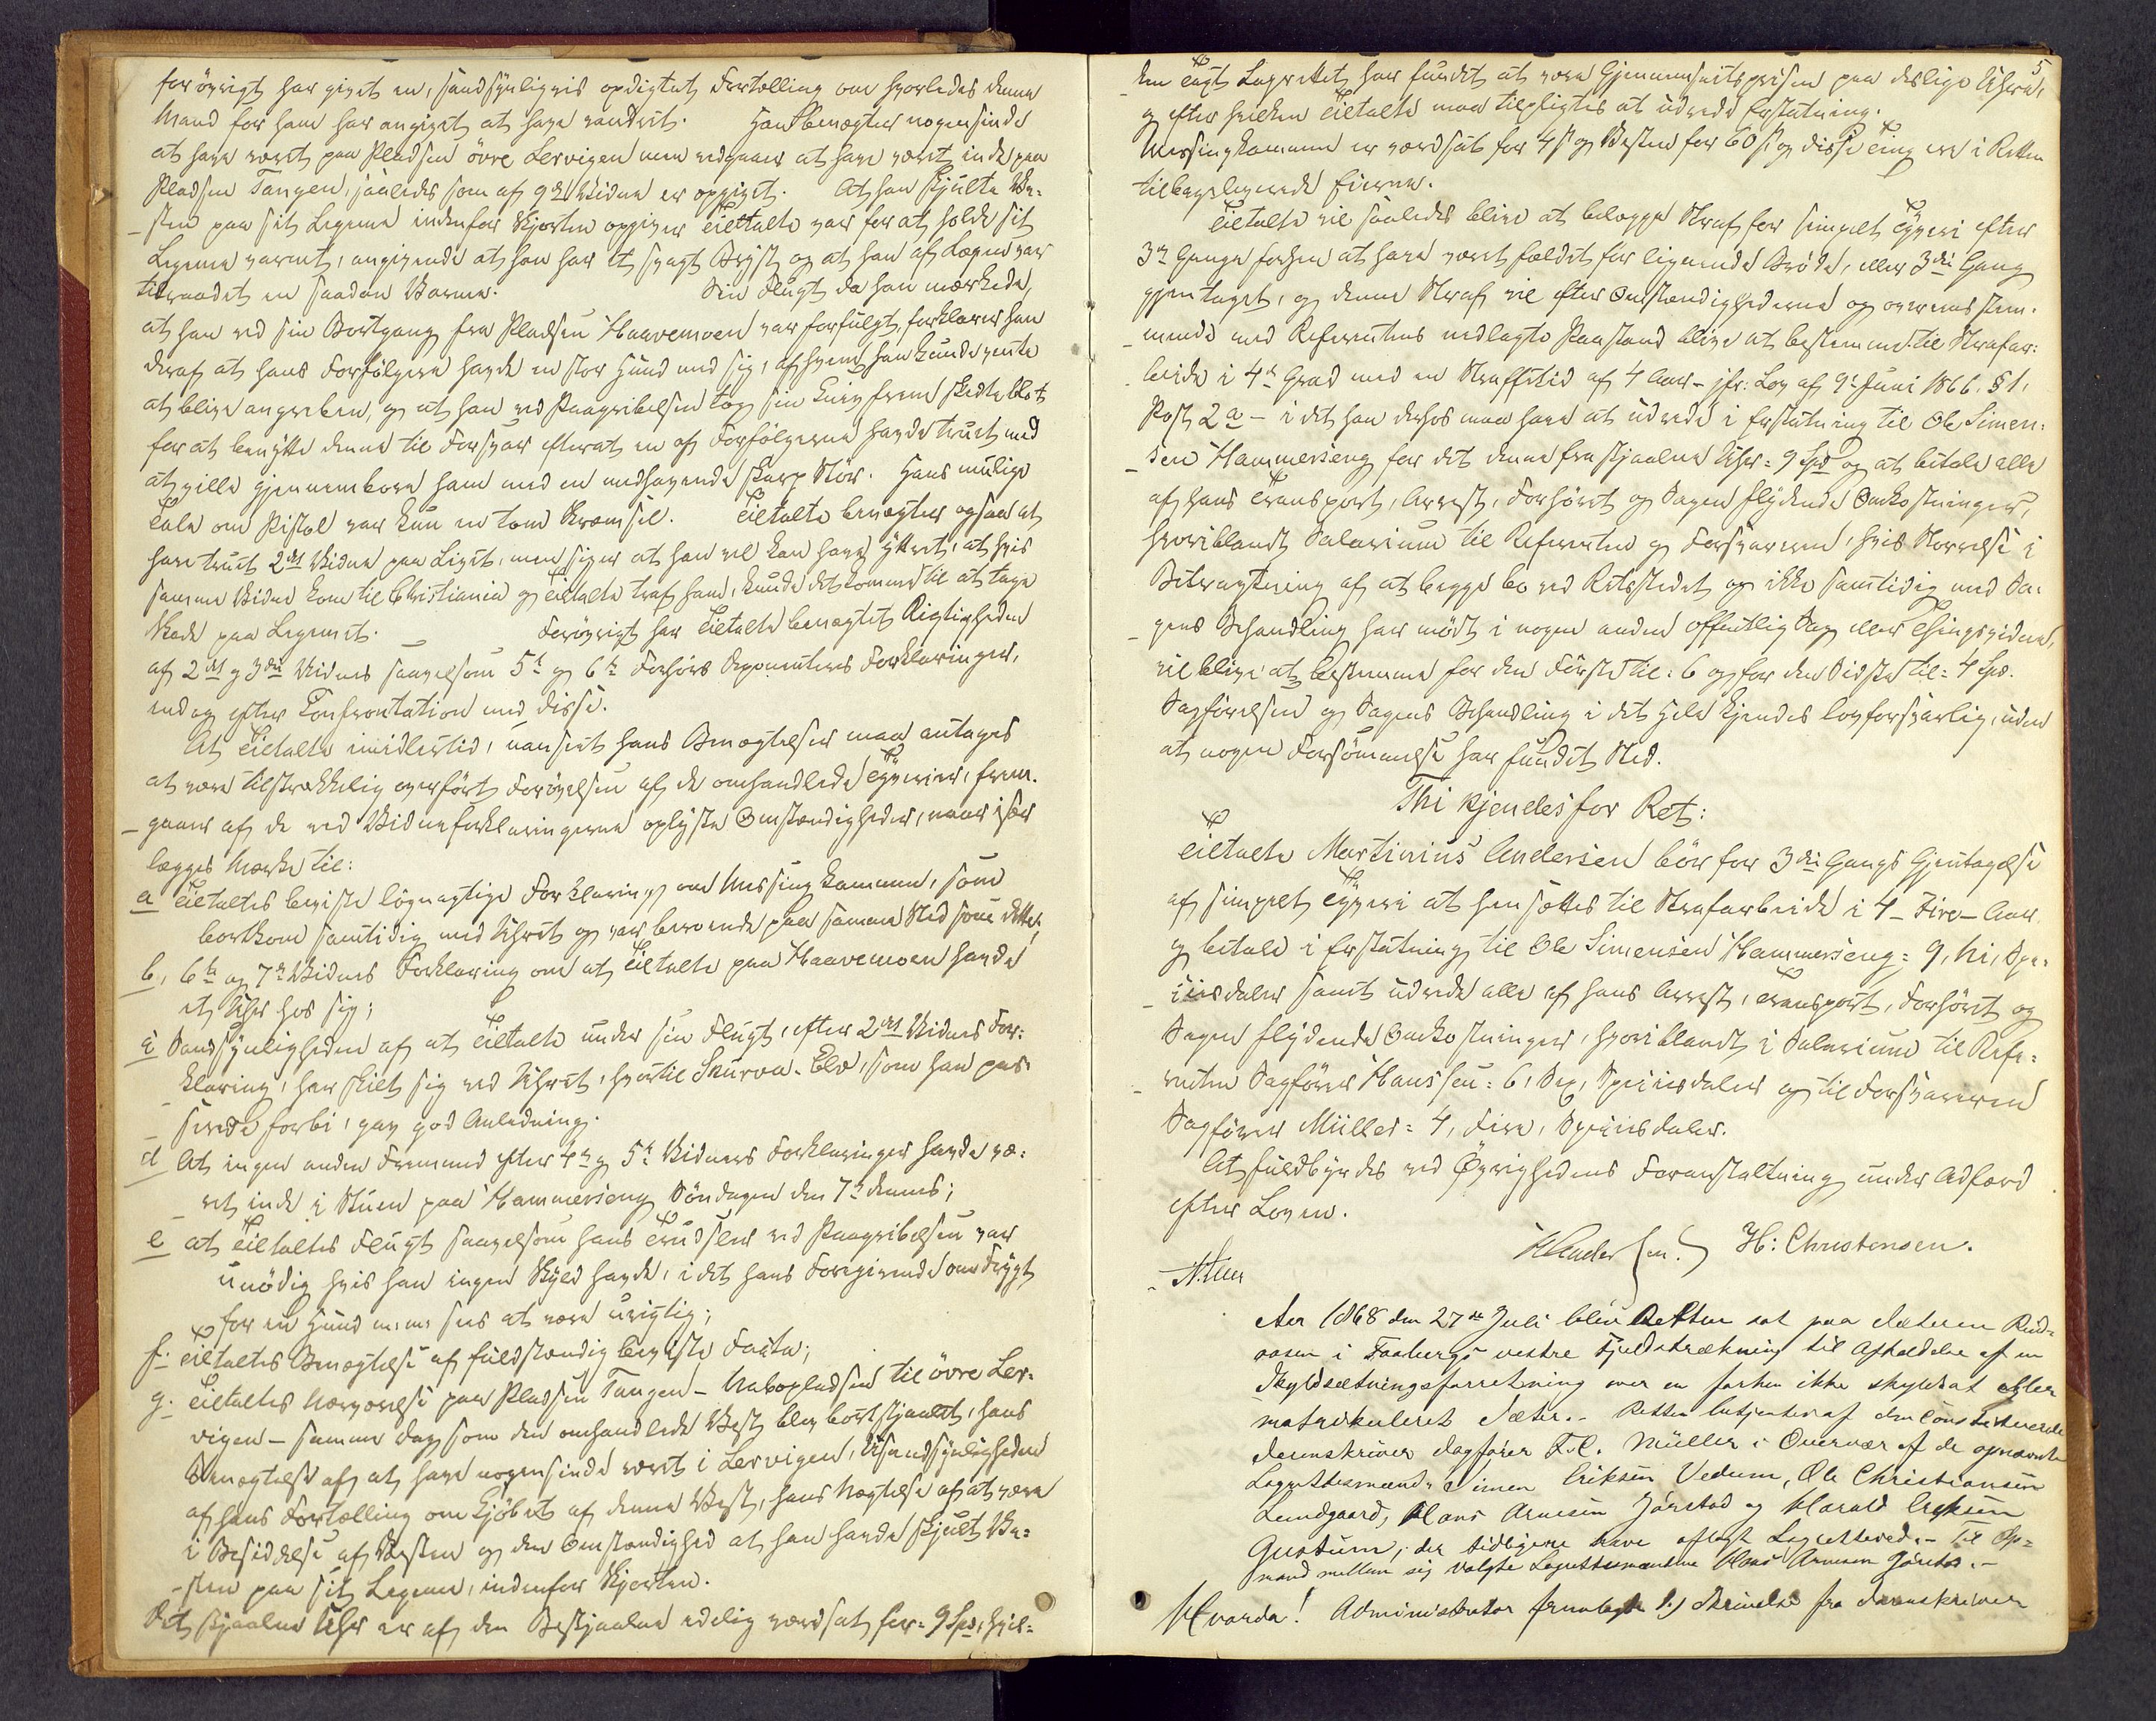 forøvrigt har givet en, sandsynligvis opdigtet, Fortælling om hvorledes denne
Mand for ham har angivet at have vandret. Han benægter nogensinde
at have været paa Pladsen övre Lervigen men vedgaaer at have været inde paa
Pladsen Tangen, saaledes som af 9de Vidne er opgivet. At han skjulte Ve-
sten paa sit Legeme indenfor Skjorten opgiver Tiltalte var for at holde sit
Legeme varmt, angivende at han har et svagt Bryst og at han af Lægen var
tilraadet en saadan Varme. Sin Flugt, da han mærkede,
at han ved sin Bortgang fra Pladsen Haavemoen var forfulgt, forklarer han
deraf at hans Forfølgere havde en stor Hund med sig, af hvem han kunde vente
at blive angreben, og at han ved Paagribelsen tog sin Kniv frem skedte blot
for at benytte denne til Forsvar efterat en af Forfølgerne havde truet med
at ville gjennembore ham med en medhavende skarp Stör. Hans mulige
Tale om Pistol var kun en tom Skræmsel. Tiltalte benægter ogsaa at
have truet 2det Vidne paa Livet, men siger at han vel kan have yttret, at hvis
samme Vidne kom til Christiania og Tiltalte traf ham, kunde det komme til at tage
Skade paa Legemet. Forøvrigt har Tiltalte benægtet Rigtigheden
af 2det og 3die Vidnes saavelsom 5te og 6te Forhørs Deponenters Forklaringer,
endog efter Confrontation med disse.
At Tiltalte imidlertid, uanseet hans Benægtelser maa antages
at være tilstrækkelig overført Forøvelsen af de omhandlede Tyverier, frem-
gaaer af de ved Vidneforklaringerne oplyste Omstændigheder, naar især
lægges Mærke til:
a Tiltaltes beviste løgnagtige Forklaring om Messingkammen, som
bortkom samtidig med Uhret og var beroende paa samme Sted som dette;
b, 6te og 7de Vidnes Forklaring om at Tiltalte paa Haavemoen havde
et Uhr hos sig;
c Sandsynligheden af at Tiltalte under sin Flugt, efter 2det Vidnes For-
klaring, har skilt sig ved Uhret, hvortil Skurva-Elv, som han pas-
serede forbi, gav god Anledning.
d At ingen anden Fremmed efter 4de og 5te Vidners Forklaringer havde væ-
ret inde i Stuen paa Hammerseng Söndagen den 7de dennes;
e at Tiltaltes Flugt saavelsom hans Trudsler ved Paagribelsen var
unödig hvis han ingen Skyld havde, i det hans Foregivende om Frygt
for en Hund m.m. sees at være urigtig;
f. Tiltaltes Benægtelse af fuldstændig beviste Facta;
g. Tiltaltes Nærværelse paa Pladsen Tangen – Nabopladsen til övre Ler-
vigen – samme Dag som den omhandlede Vest blev bortstjaalet, hans
Benægtelse af at have nogensinde været i Lervigen, Usandsynligheden
af hans Fortælling om Kjöbet af denne Vest, hans Nægtelse af at være
i Besiddelse af Vesten og den Omstændighed at han havde skjult Ve-
sten paa sit Legeme, indenfor Skjorten.
Det stjaalne Uhr er af den Bestjaalne edelig værdsat for = 9 Spd, hvil-
5
ken Tagt Lagrettet har fundet at være Gjennemsnitsprisen paa deslige Uhre,
og efter hvilken Tiltalte maa tilpligtes at udrede Erstatning.
Messingkammen er værdsat for 4 ß og Vesten for 60 ß og disse Ting ere i Retten
tilbageleverede Eierne.
Tiltalte vil saaledes blive at belægge Straf for simpelt Tyveri efter
3de Gange forhen at have været fældet for lignende Brøde, eller 3die Gang
gjentaget, og denne Straf vil efter Omstændighederne og overensstem-
mende med Referentens nedlagte Paastand blive at bestemme til Strafar-
beide i 4de Grad med en Straffetid af 4 Aar – jfr: Lov af 9de Juni 1866. § 1,
Post 2 a – i det han derhos maa have at udrede i Erstatning til Ole Simen-
sen Hammerseng for det denne frastjaalne Uhr = 9 Spd og at betale alle
af hans Transport, Arrest, Forhöret og Sagen flydende Omkostninger,
hvoriblandt Salarium til Referenten og Forsvareren, hvis Størrelse i
Betragtning af at begge bo ved Retsstedet og ikke samtidig med Sa-
gens Behandling har mödt i nogen anden offentlig Sag eller Thingsvidne,
vil blive at bestemme for den Första til: 6 og for den Sidste til = 4 Spd.
Sagførelsen og Sagens Behandling i det Hele kjendes lovforsvarlig, uden
at nogen Forsömmelse har fundet Sted.
Thi kjendes for Ret:
Tiltalte Martinius Andersen bör for 3die Gangs Gjentagelse
af simpelt Tyveri at hensættes til Strafarbeide i 4 – Fire – Aar
og betale i Erstatning til Ole Simensen Hammerseng = 9, Ni, Spe-
ciesdaler samt udrede alle af hans Arrest, Transport, Forhöret og
Sagen flydende Omkostninger, hvoriblandt i Salarium til Refe-
renten Sagförer Hanssen = 6, Sex, Speciesdaler og til Forsvareren
Sagförer Müller = 4, Fire, Speciesdaler.
At fuldbyrdes ved Øvrighedens Foranstaltning under Adfærd
efter Loven.
H: Christensen.
Aar 1868 den 27de Juli blev Retten sat paa Sæteren Rind-
aasen i Faabergs vestre Fjeldstrækning til Afholdelse af en
Skyldsætningsforretning over en forhen ikke skyldsat eller
matrikuleret Sæter. – Retten betjentes af den Constituerede
Sorenskriver Sagfører F.C. Müller i Overvær af de opnævnte
Lagrettesmænd: Simen Eriksen Vedum, Ole Christiansen
Lundgaard, Hans Arnesen Jørstad og Harald Eriksen
Gustum, der tidligere have aflagt Lagretteed. – Til Op-
mand mellem sig valgte Lagrettesmændene Hans Arnesen Jørstad. –
Hvorda! Administrator fremlagde 1) Skrivelse fra Sorenskriver